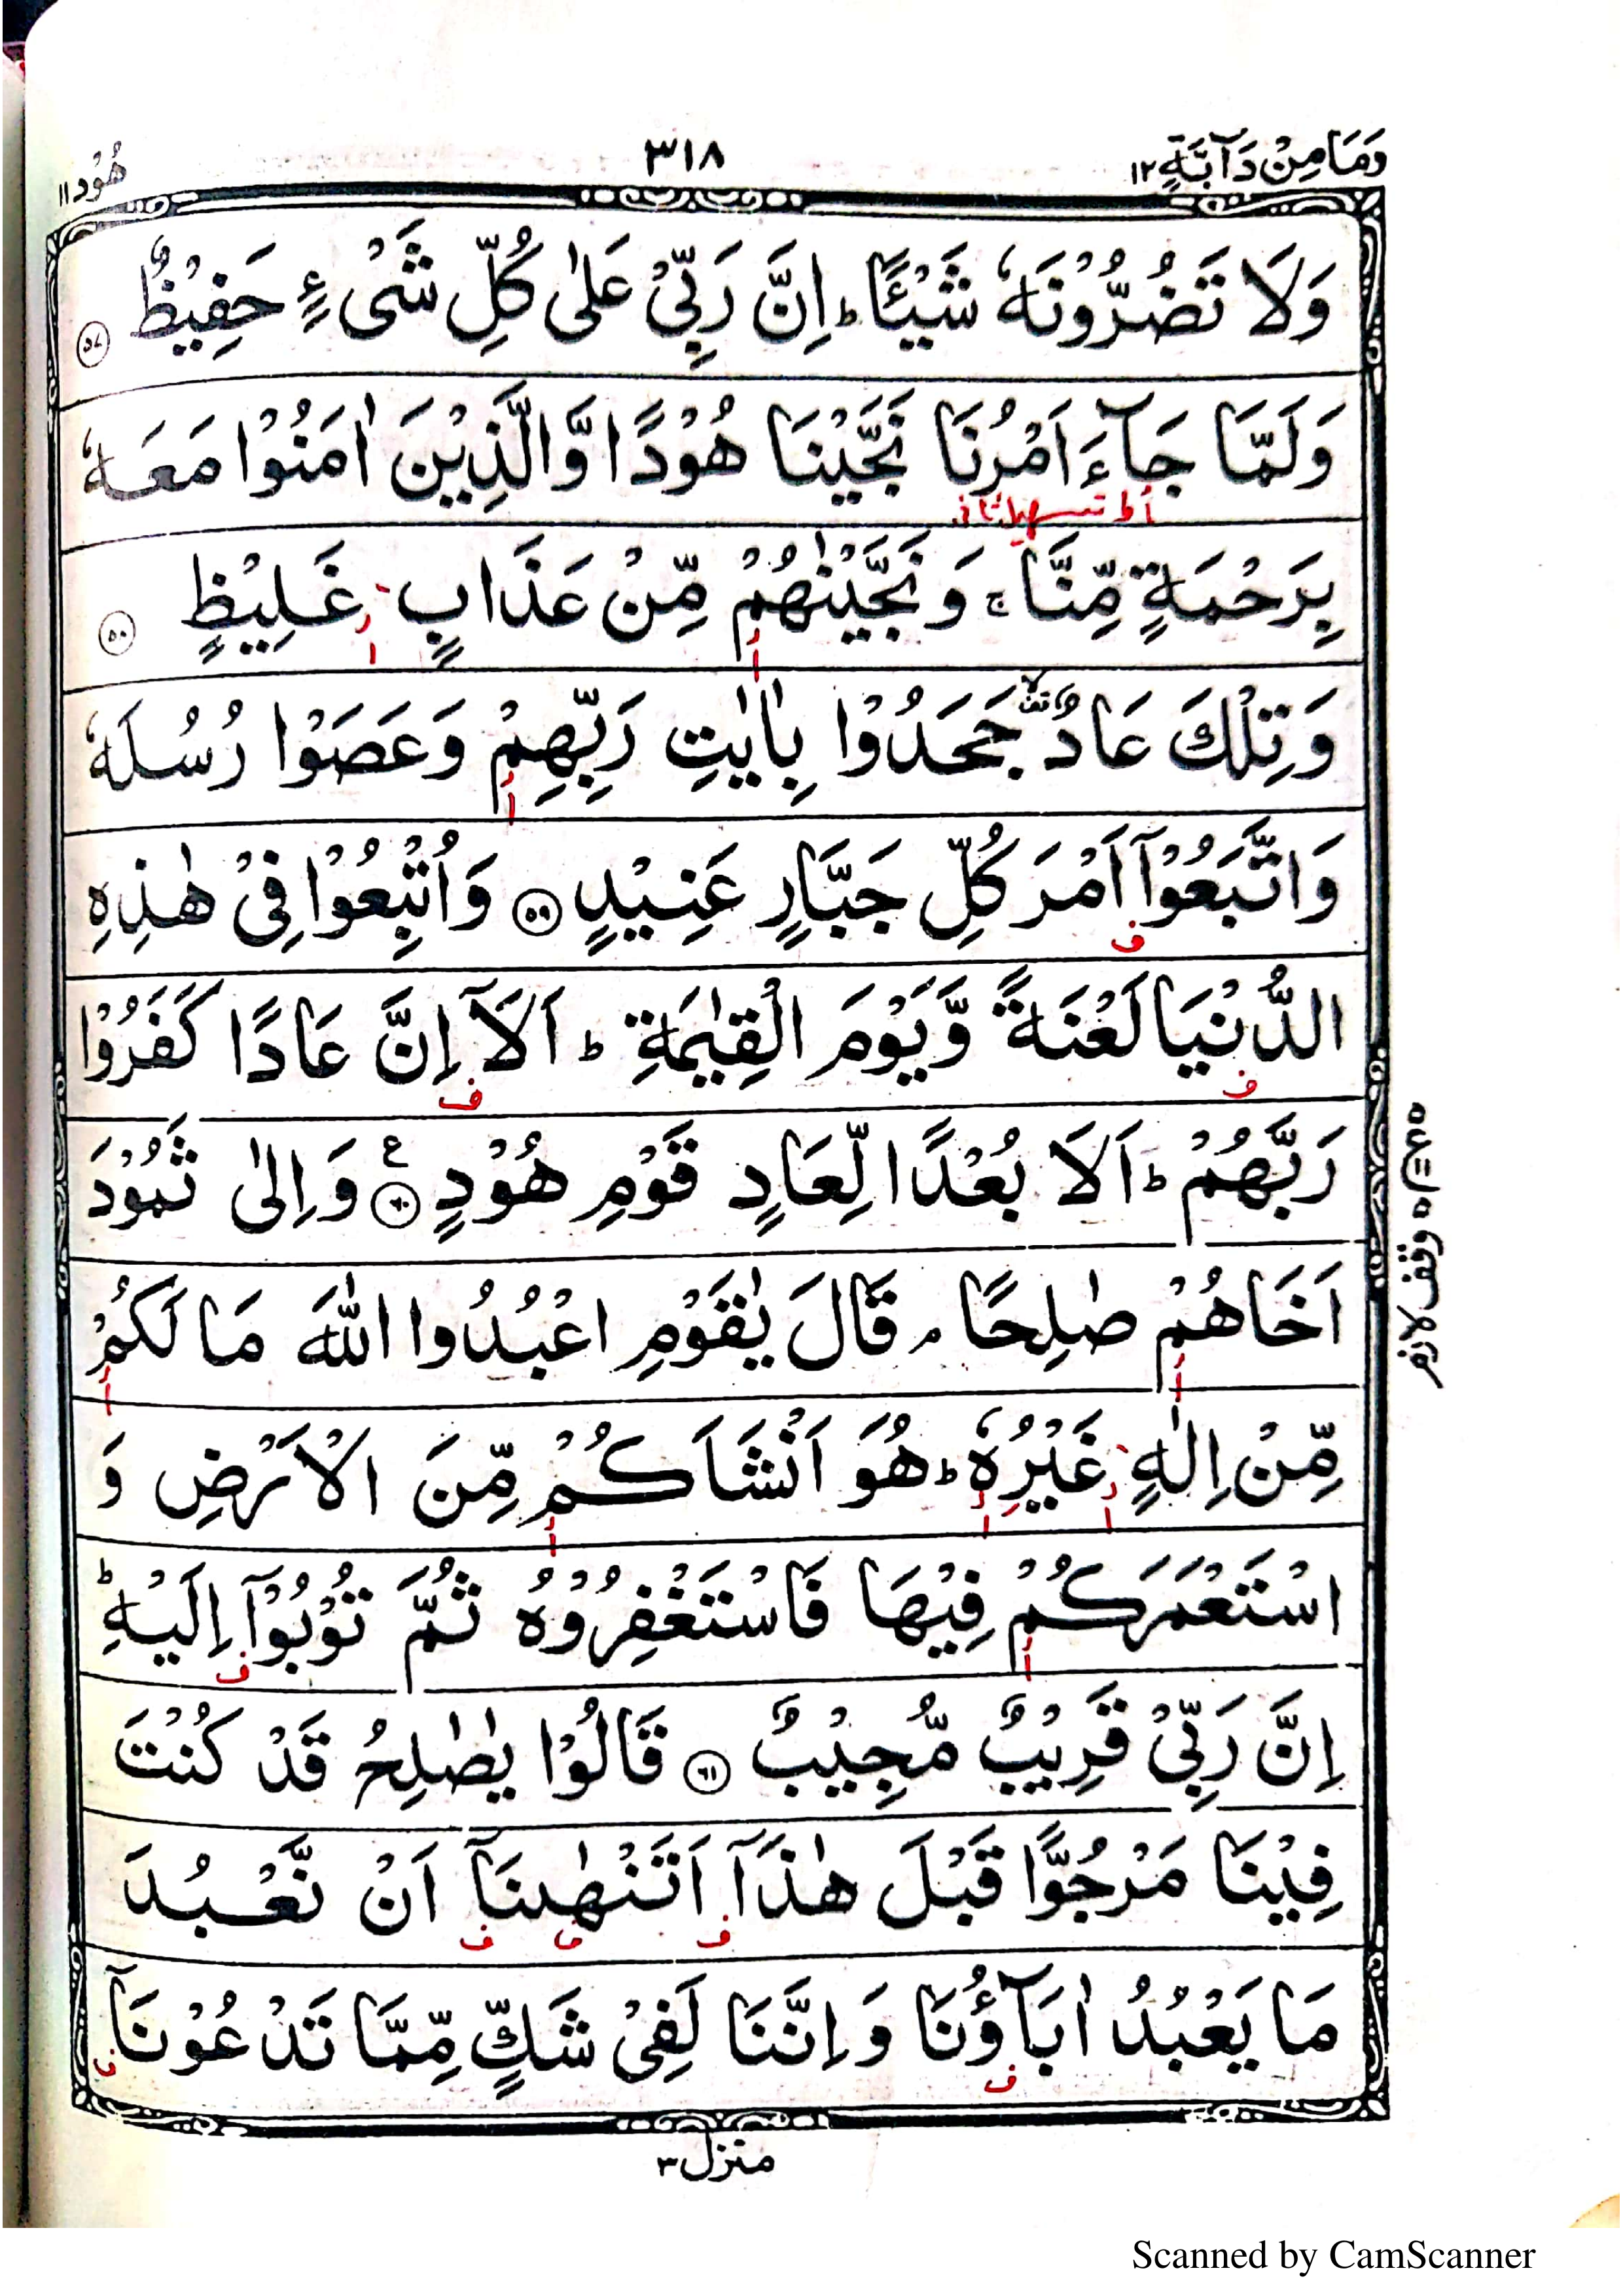 وَمَا مِنْ دَآبَّةٍ ١٢
٣١٨
هُوْد ١١
وَلَا تَضُرُّوْنَهٗ شَيْـًٔا ؕ اِنَّ رَبِّيْ عَلٰى كُلِّ شَيْءٍ حَفِيْظٌ ٥٧
وَلَمَّا جَآءَ اَمْرُنَا نَجَّيْنَا هُوْدًا وَّالَّذِيْنَ اٰمَنُوْا مَعَهٗ
بِرَحْمَةٍ مِّنَّا ۚ وَنَجَّيْنٰهُمْ مِّنْ عَذَابٍ غَلِيْظٍ ٥٨
وَتِلْكَ عَادٌ جَحَدُوْا بِاٰيٰتِ رَبِّهِمْ وَعَصَوْا رُسُلَهٗ
وَاتَّبَعُوْۤا اَمْرَ كُلِّ جَبَّارٍ عَنِيْدٍ ٥٩ وَاُتْبِعُوْا فِيْ هٰذِهِ
الدُّنْيَا لَعْنَةً وَّيَوْمَ الْقِيٰمَةِ ؕ اَلَاۤ اِنَّ عَادًا كَفَرُوْا
رَبَّهُمْ ؕ اَلَا بُعْدًا لِّعَادٍ قَوْمِ هُوْدٍ ٦٠ ع وَاِلٰى ثَمُوْدَ
اَخَاهُمْ صٰلِحًا ۘ قَالَ يٰقَوْمِ اعْبُدُوا اللّٰهَ مَا لَكُمْ
مِّنْ اِلٰهٍ غَيْرُهٗ ؕ هُوَ اَنْشَاَكُمْ مِّنَ الْاَرْضِ وَ
اسْتَعْمَرَكُمْ فِيْهَا فَاسْتَغْفِرُوْهُ ثُمَّ تُوْبُوْۤا اِلَيْهِ ؕ
اِنَّ رَبِّيْ قَرِيْبٌ مُّجِيْبٌ ٦١ قَالُوْا يٰصٰلِحُ قَدْ كُنْتَ
فِيْنَا مَرْجُوًّا قَبْلَ هٰذَاۤ اَتَنْهٰىنَاۤ اَنْ نَّعْبُدَ
مَا يَعْبُدُ اٰبَآؤُنَا وَاِنَّنَا لَفِيْ شَكٍّ مِّمَّا تَدْعُوْنَاۤ
وقف لازم
منزل ٣
Scanned by CamScanner